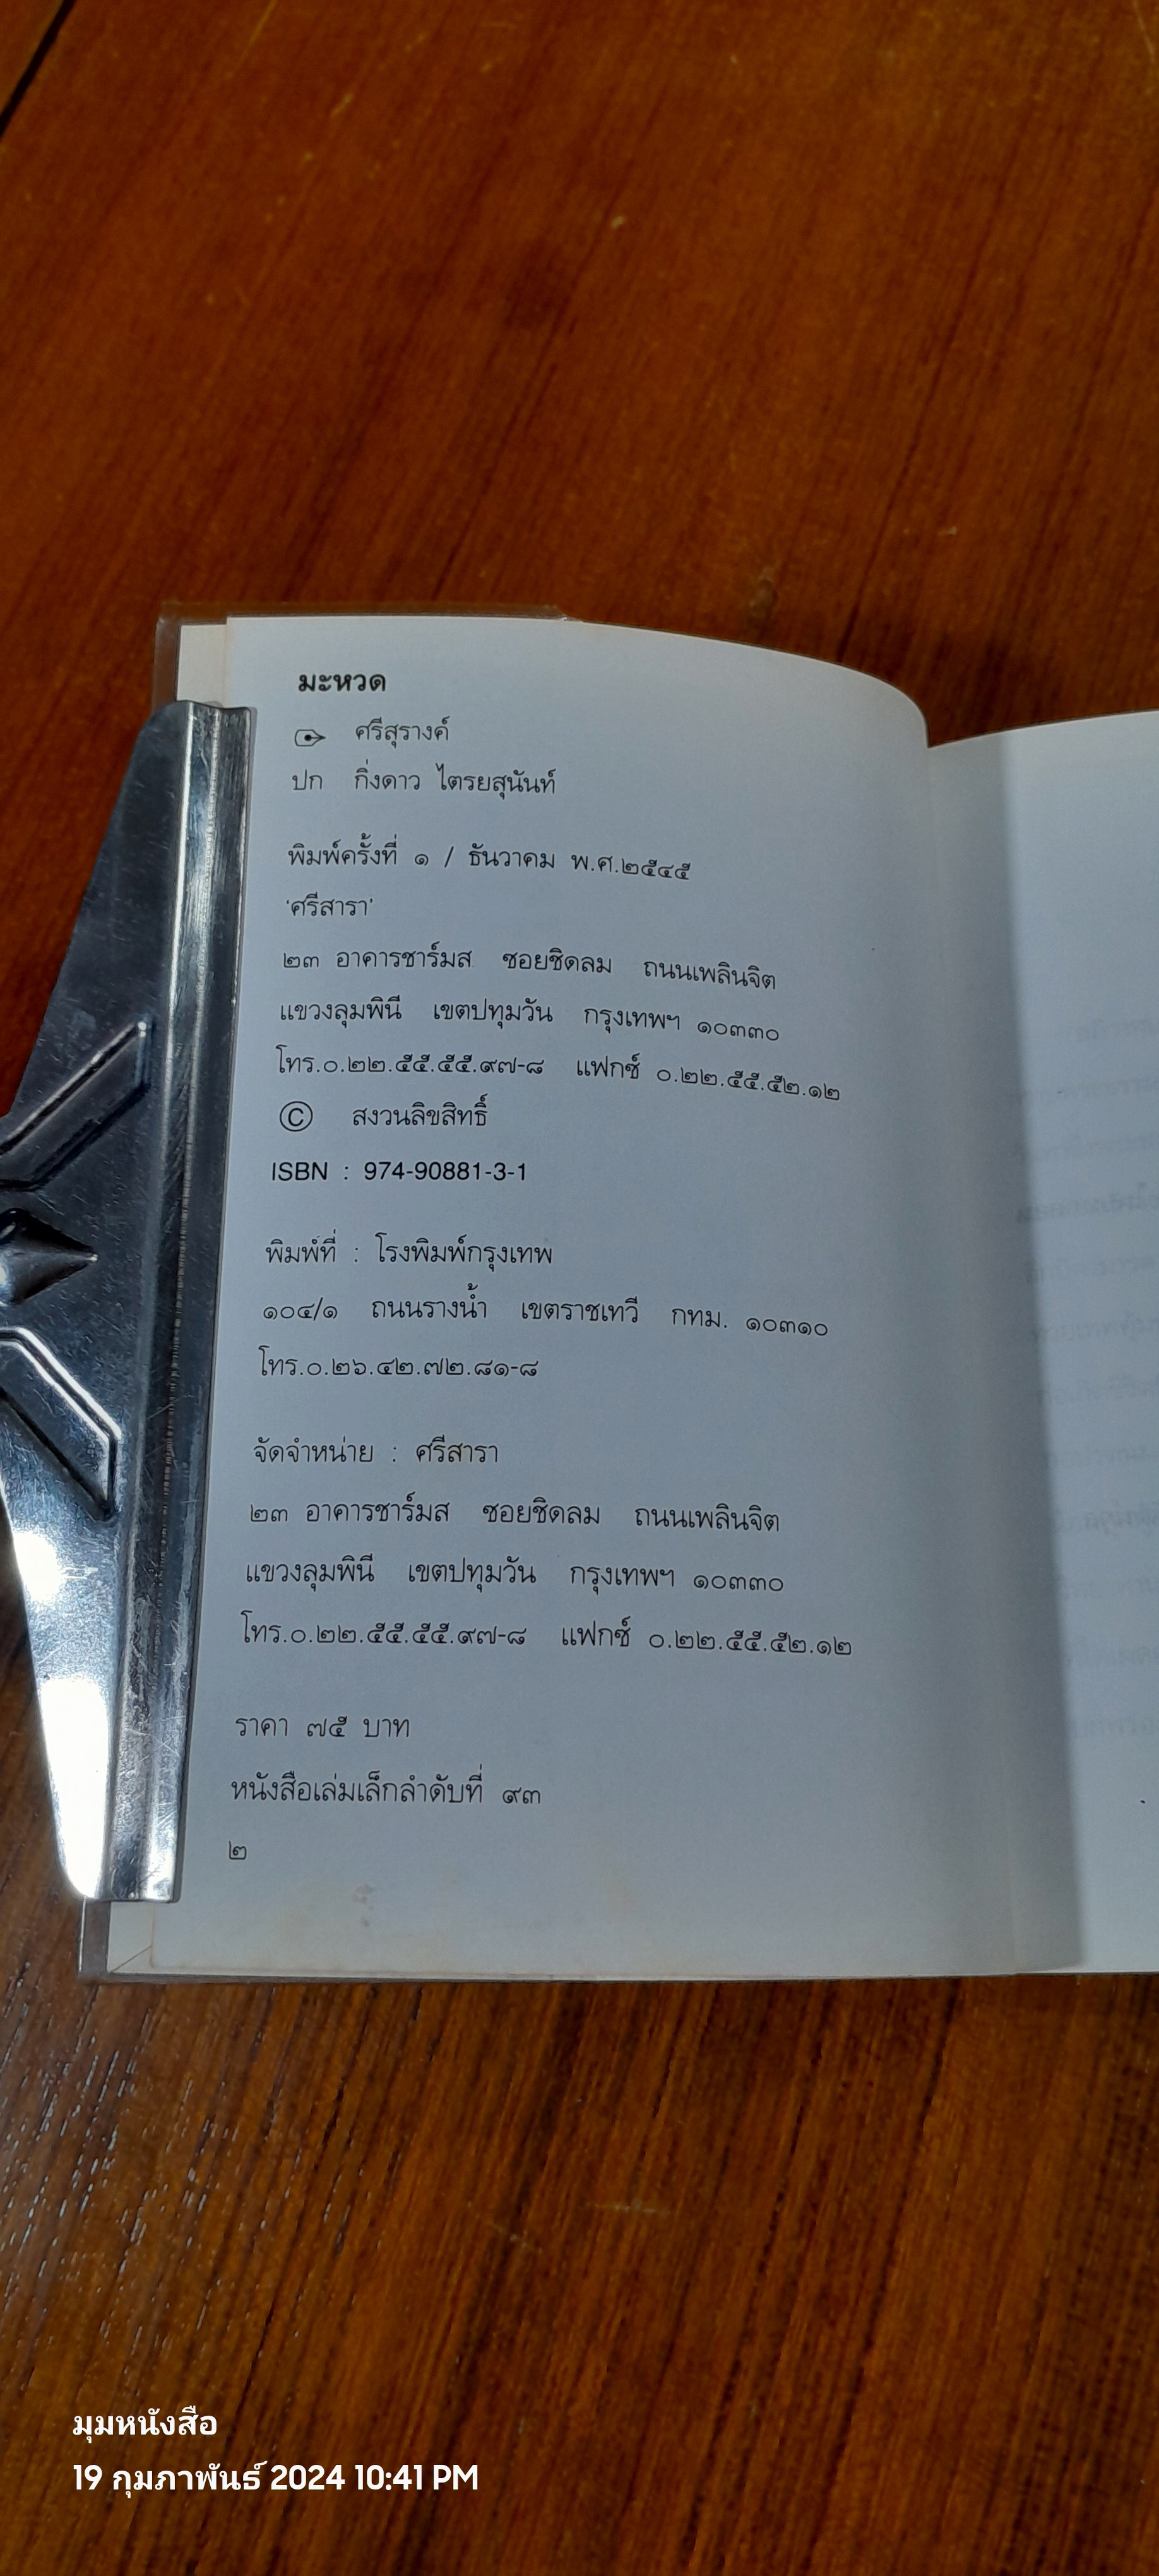 มะหวด
ศรีสุรางค์
ปก กิ่งดาว ไตรยสุนันท์
พิมพ์ครั้งที่ ๑ / ธันวาคม พ.ศ.๒๕๔๕
‘ศรีสารา’
๒๓ อาคารชาร์มส ซอยชิดลม ถนนเพลินจิต
แขวงลุมพินี เขตปทุมวัน กรุงเทพฯ ๑๐๓๓๐
โทร.๐.๒๒.๕๕.๕๕.๙๗-๘ แฟกซ์ ๐.๒๒.๕๕.๕๒.๑๒
© สงวนลิขสิทธิ์
ISBN : 974-90881-3-1
พิมพ์ที่ : โรงพิมพ์กรุงเทพ
๑๐๔/๑ ถนนรางน้ำ เขตราชเทวี กทม. ๑๐๓๑๐
โทร.๐.๒๖.๔๒.๗๒.๘๑-๘
จัดจำหน่าย : ศรีสารา
๒๓ อาคารชาร์มส ซอยชิดลม ถนนเพลินจิต
แขวงลุมพินี เขตปทุมวัน กรุงเทพฯ ๑๐๓๓๐
โทร.๐.๒๒.๕๕.๕๕.๙๗-๘ แฟกซ์ ๐.๒๒.๕๕.๕๒.๑๒
ราคา ๗๕ บาท
หนังสือเล่มเล็กลำดับที่ ๙๓
๒
มุมหนังสือ
19 กุมภาพันธ์ 2024 10:41 PM